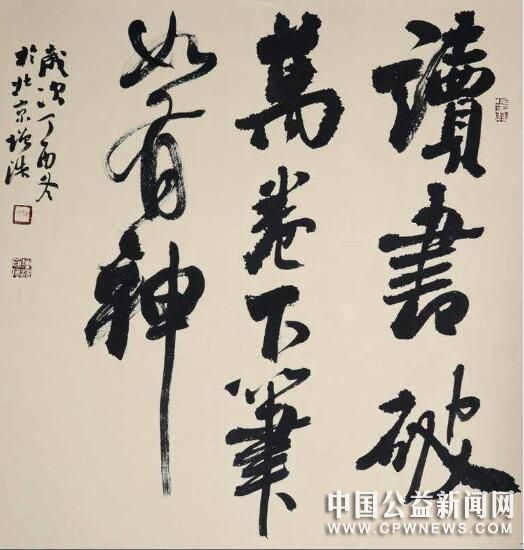 讀書破
萬卷下筆
如有神
歲次丁酉冬
於北京增浩
中国公益新闻网
WWW.CPWNEWS.COM